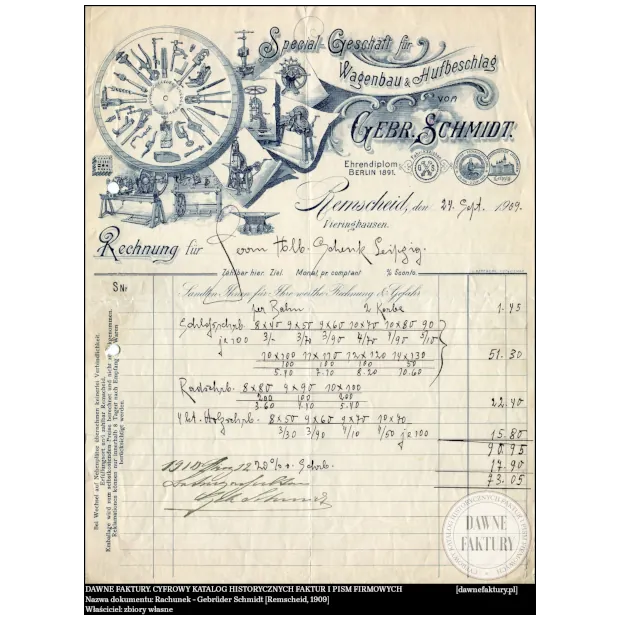 Special-Geschäft für
Wagenbau & Hufbeschlag
von
GEBR. SCHMIDT.
Ehrendiplom
BERLIN 1891.
Remscheid, den 24 Sept. 1909.
Vieringhausen.
Rechnung für Herrn Schenk Leipzig.
Zahlbar hier. Ziel. Monat pr. comptant % Sconto.
S Nr Sandten Ihnen für Ihre werthe Rechnung & Gefahr
per Bahn 2 Körbe 1.45
Schloßschrb. 8x40 9x50 9x60 10x70 10x80 90
je 100 3/- 3/70 3/90 4/70 4/95 5/10
10x100 11x110 12x120 14x130 51.30
100 100 100 50
5.40 7.10 8.20 10.60
Radschrb. 8x80 9x90 10x100
200 100 200 22.40
3.60 7.40 5.40
4 kt. Holzschrb. 8x50 9x60 9x70 10x70
3/30 3/90 4/10 4/50 je 100 15.80
90.95
20% 17.90
73.05
Bei Wechsel auf Nebenplätze übernehmen keinerlei Verbindlichkeit.
Erfüllungsort und zahlbar Remscheid.
Emballage wird zum selbstkostenden Preise berechnet und nicht zurückgenommen.
Reklamationen können nur innerhalb 8 Tagen nach Empfang der Waren
berücksichtigt werden.
DAWNE
FAKTURY
DAWNE FAKTURY. CYFROWY KATALOG HISTORYCZNYCH FAKTUR I PISM FIRMOWYCH [dawnefaktury.pl]
Nazwa dokumentu: Rachunek - Gebrüder Schmidt [Remscheid, 1909]
Właściciel: zbiory własne